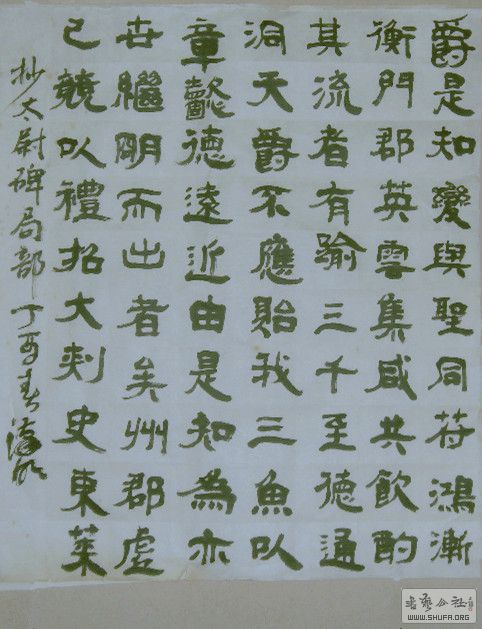 爵是知變與聖同符鴻漸
衡門郡英雲集咸共飲酌
其流者有踰三千至德通
洞天爵不應貽我三魚以
章懿德遠近由是知為亦
世繼明而出者矣州郡虛
己競以禮招大刺史東萊
抄太尉碑局部丁酉春
书艺公社
WWW.SHUFA.ORG